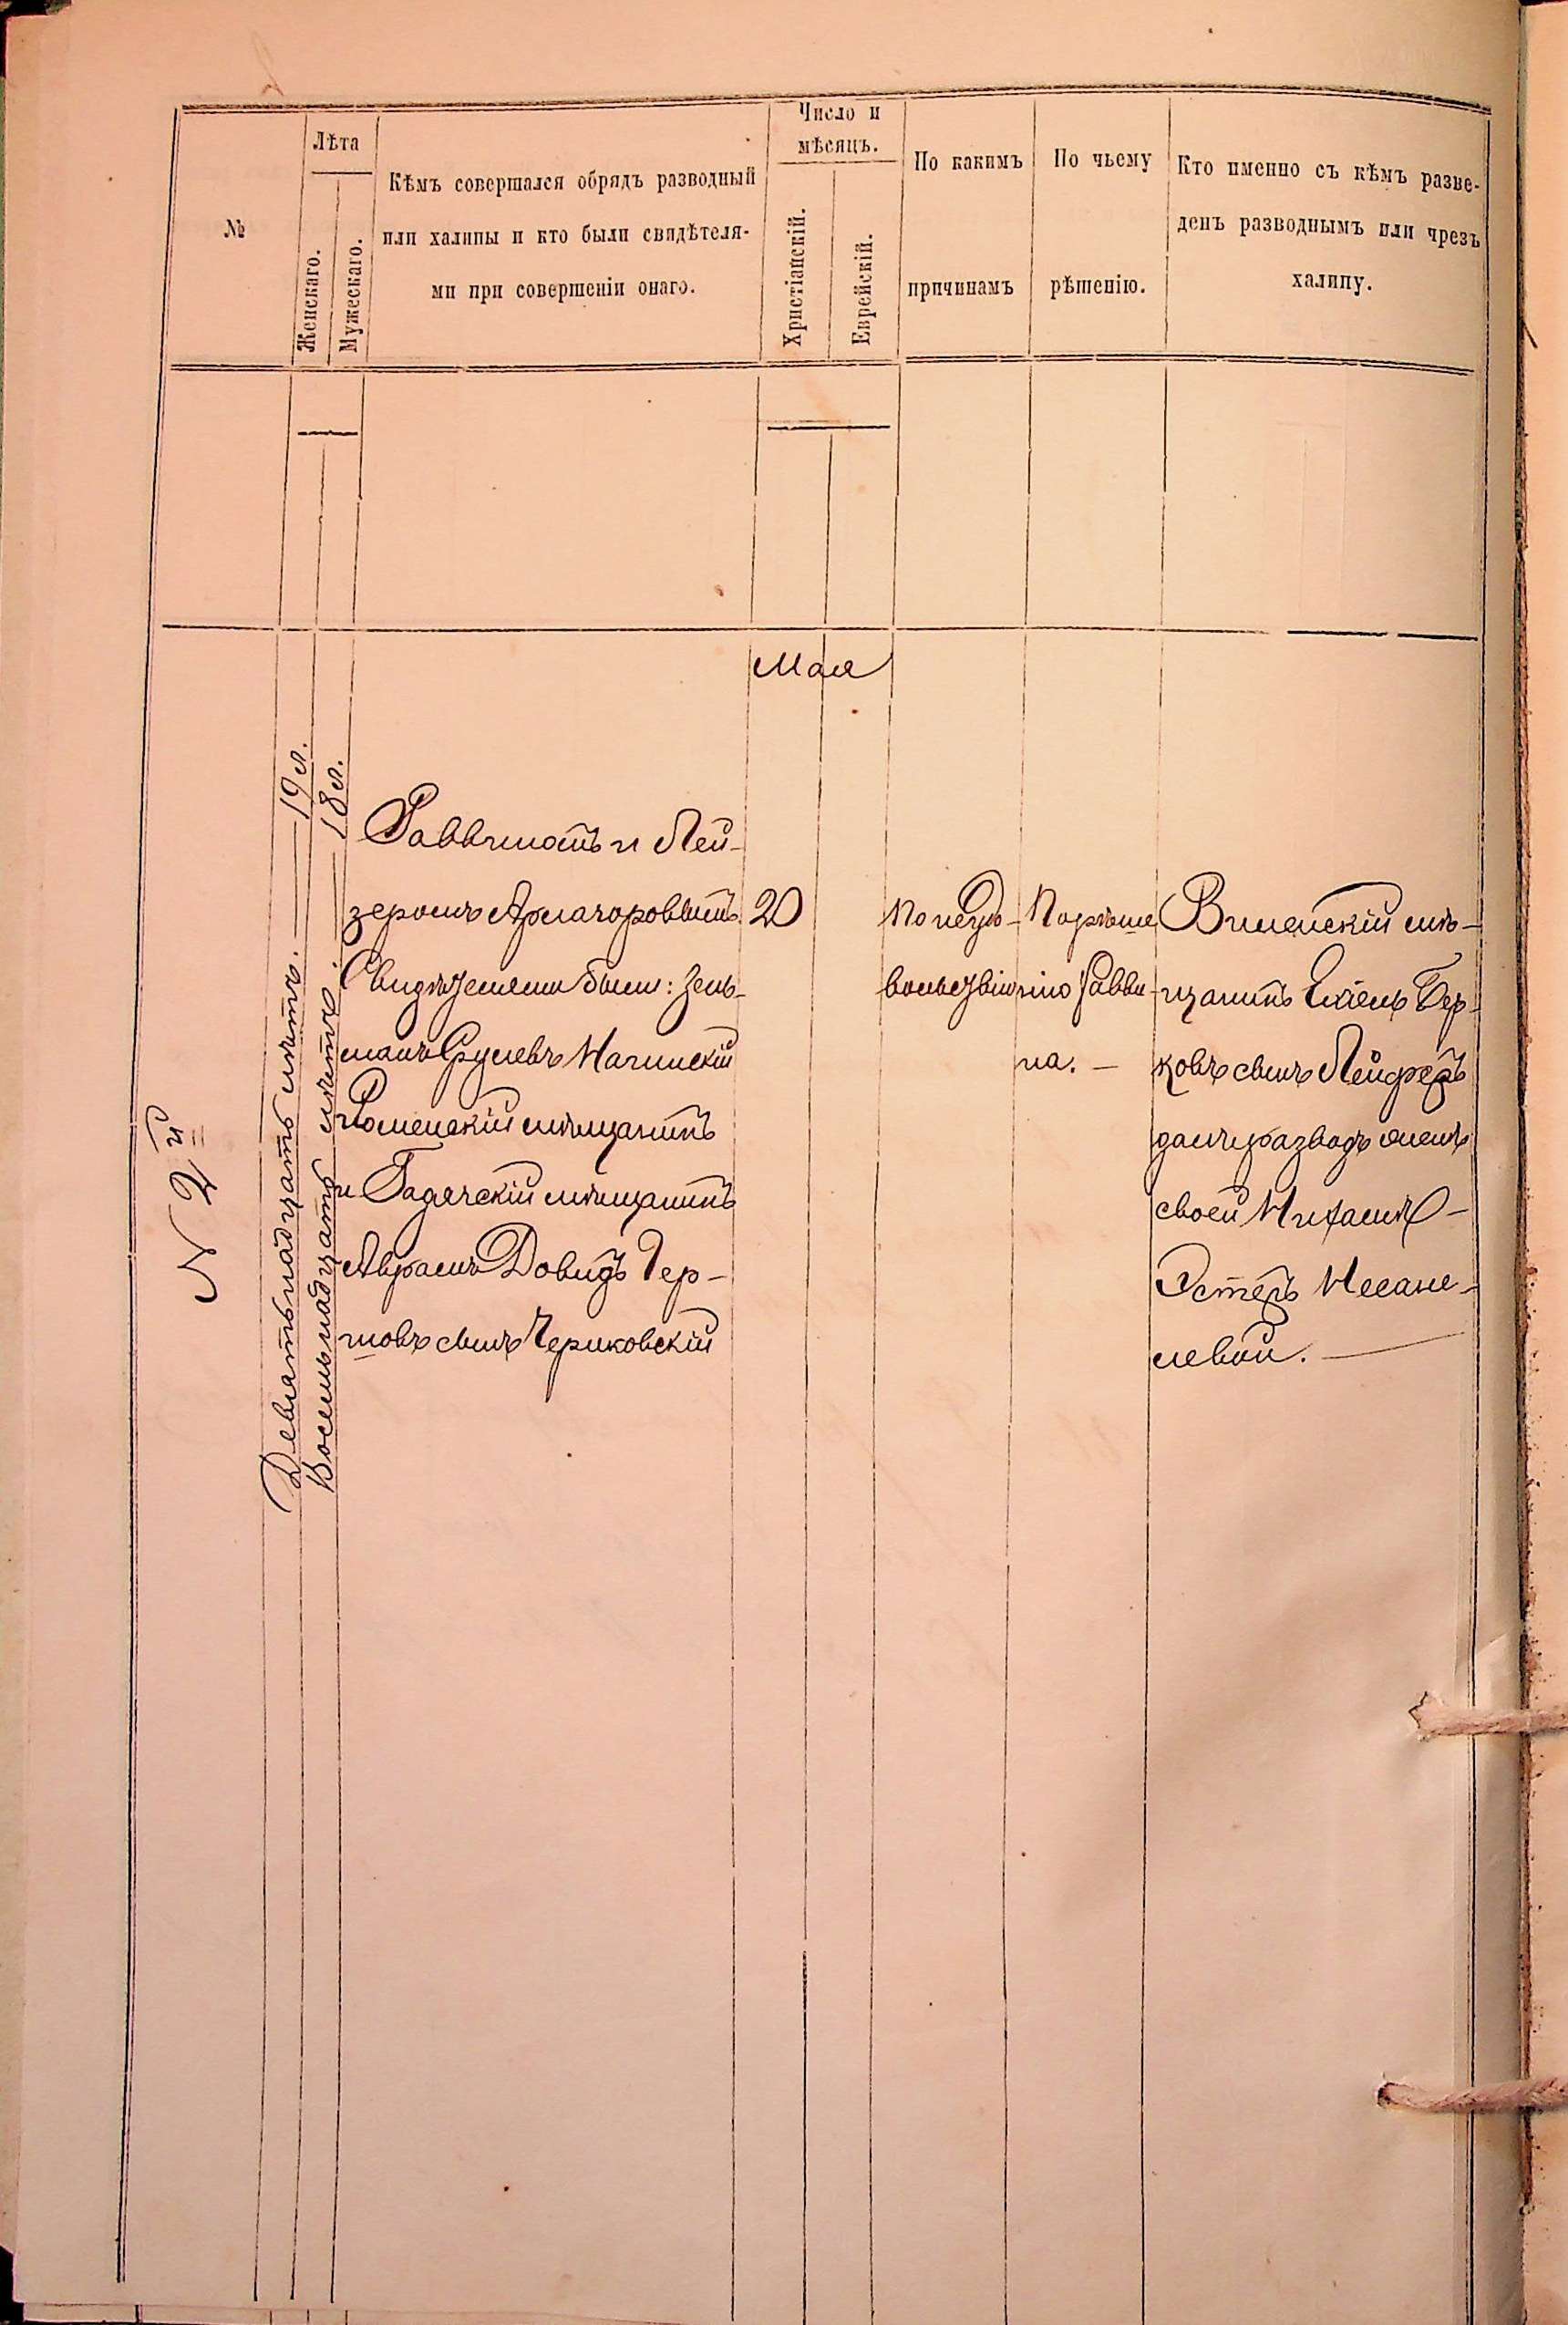 №
Лѣта
Женскаго.
Мужескаго.
Кѣмъ совершался обрядъ разводный
или халипы и кто были свидѣтеля-
ми при совершеніи онаго.
Число и
мѣсяцъ.
Христіанскій.
Еврейскій.
По какимъ
причинамъ
По чьему
рѣшенію.
Кто именно съ кѣмъ разве-
денъ разводнымъ или чрезъ
халипу.
N 2й
Девятьнадцать лѣтъ. — 19 л.
Восемьнадцать лѣтъ. — 18 л.
Раввиномъ Лей-
зеромъ
Свидѣтелями были: Зель-
манъ Срулевъ
Роменскій мѣщанинъ
и Гадячскій мѣщанинъ
Аврамъ Довидъ Гер-
шовъ сынъ Чериковскій
Мая
20
По неудо-
вольствію
По рѣше
нію Равви-
на. —
Виленскій мѣ-
щанинъ Бер-
ковъ сынъ
далъ разводъ женѣ
своей
Эстеръ
левой. —